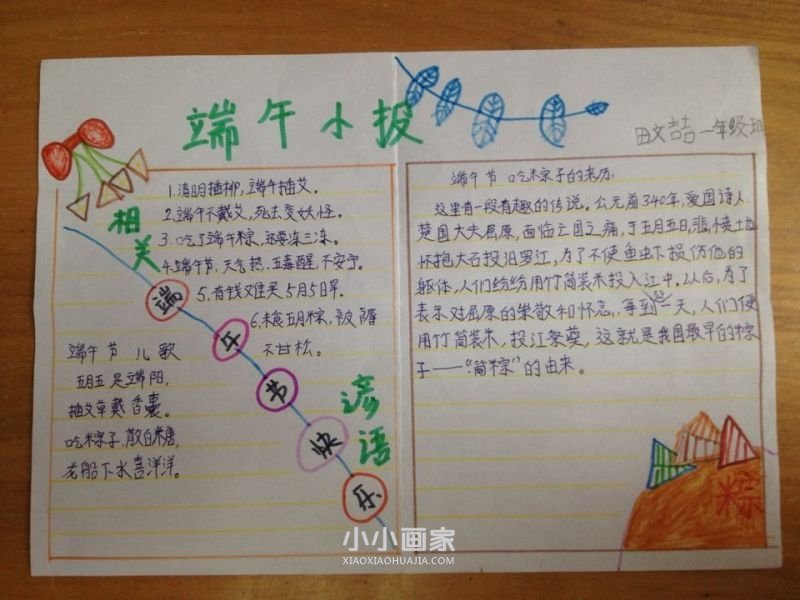 端午小报
田文喆 一年级班
相关
1.清明插柳,端午插艾。
2.端午不戴艾,死去变妖怪。
3.吃了端午粽,还要冻三冻。
4.端午节,天气热,五毒醒,不安宁。
5.有钱难买5月5日旱。
6.未食五月粽,被
不甘松。
谚语
端午节快乐
端午节儿歌
五月五是端阳,
插艾草戴香囊。
吃粽子,散白糖,
龙船下水喜洋洋。
端午节吃粽子的来历:
这里有一段有趣的传说,公元前340年,爱国诗人、
楚国大夫屈原,面临亡国之痛,于五月五日,悲愤地
怀抱大石投汨罗江,为了不使鱼虫下损伤他的
躯体,人们纷纷用竹筒装米投入江中。从后,为了
表示对屈原的崇敬和怀念,每到这一天,人们便
用竹筒装米,投江祭奠,这就是我国最早的粽
子——“筒粽”的由来。
粽
小小画家
XIAOXIAOHUAJIA.COM